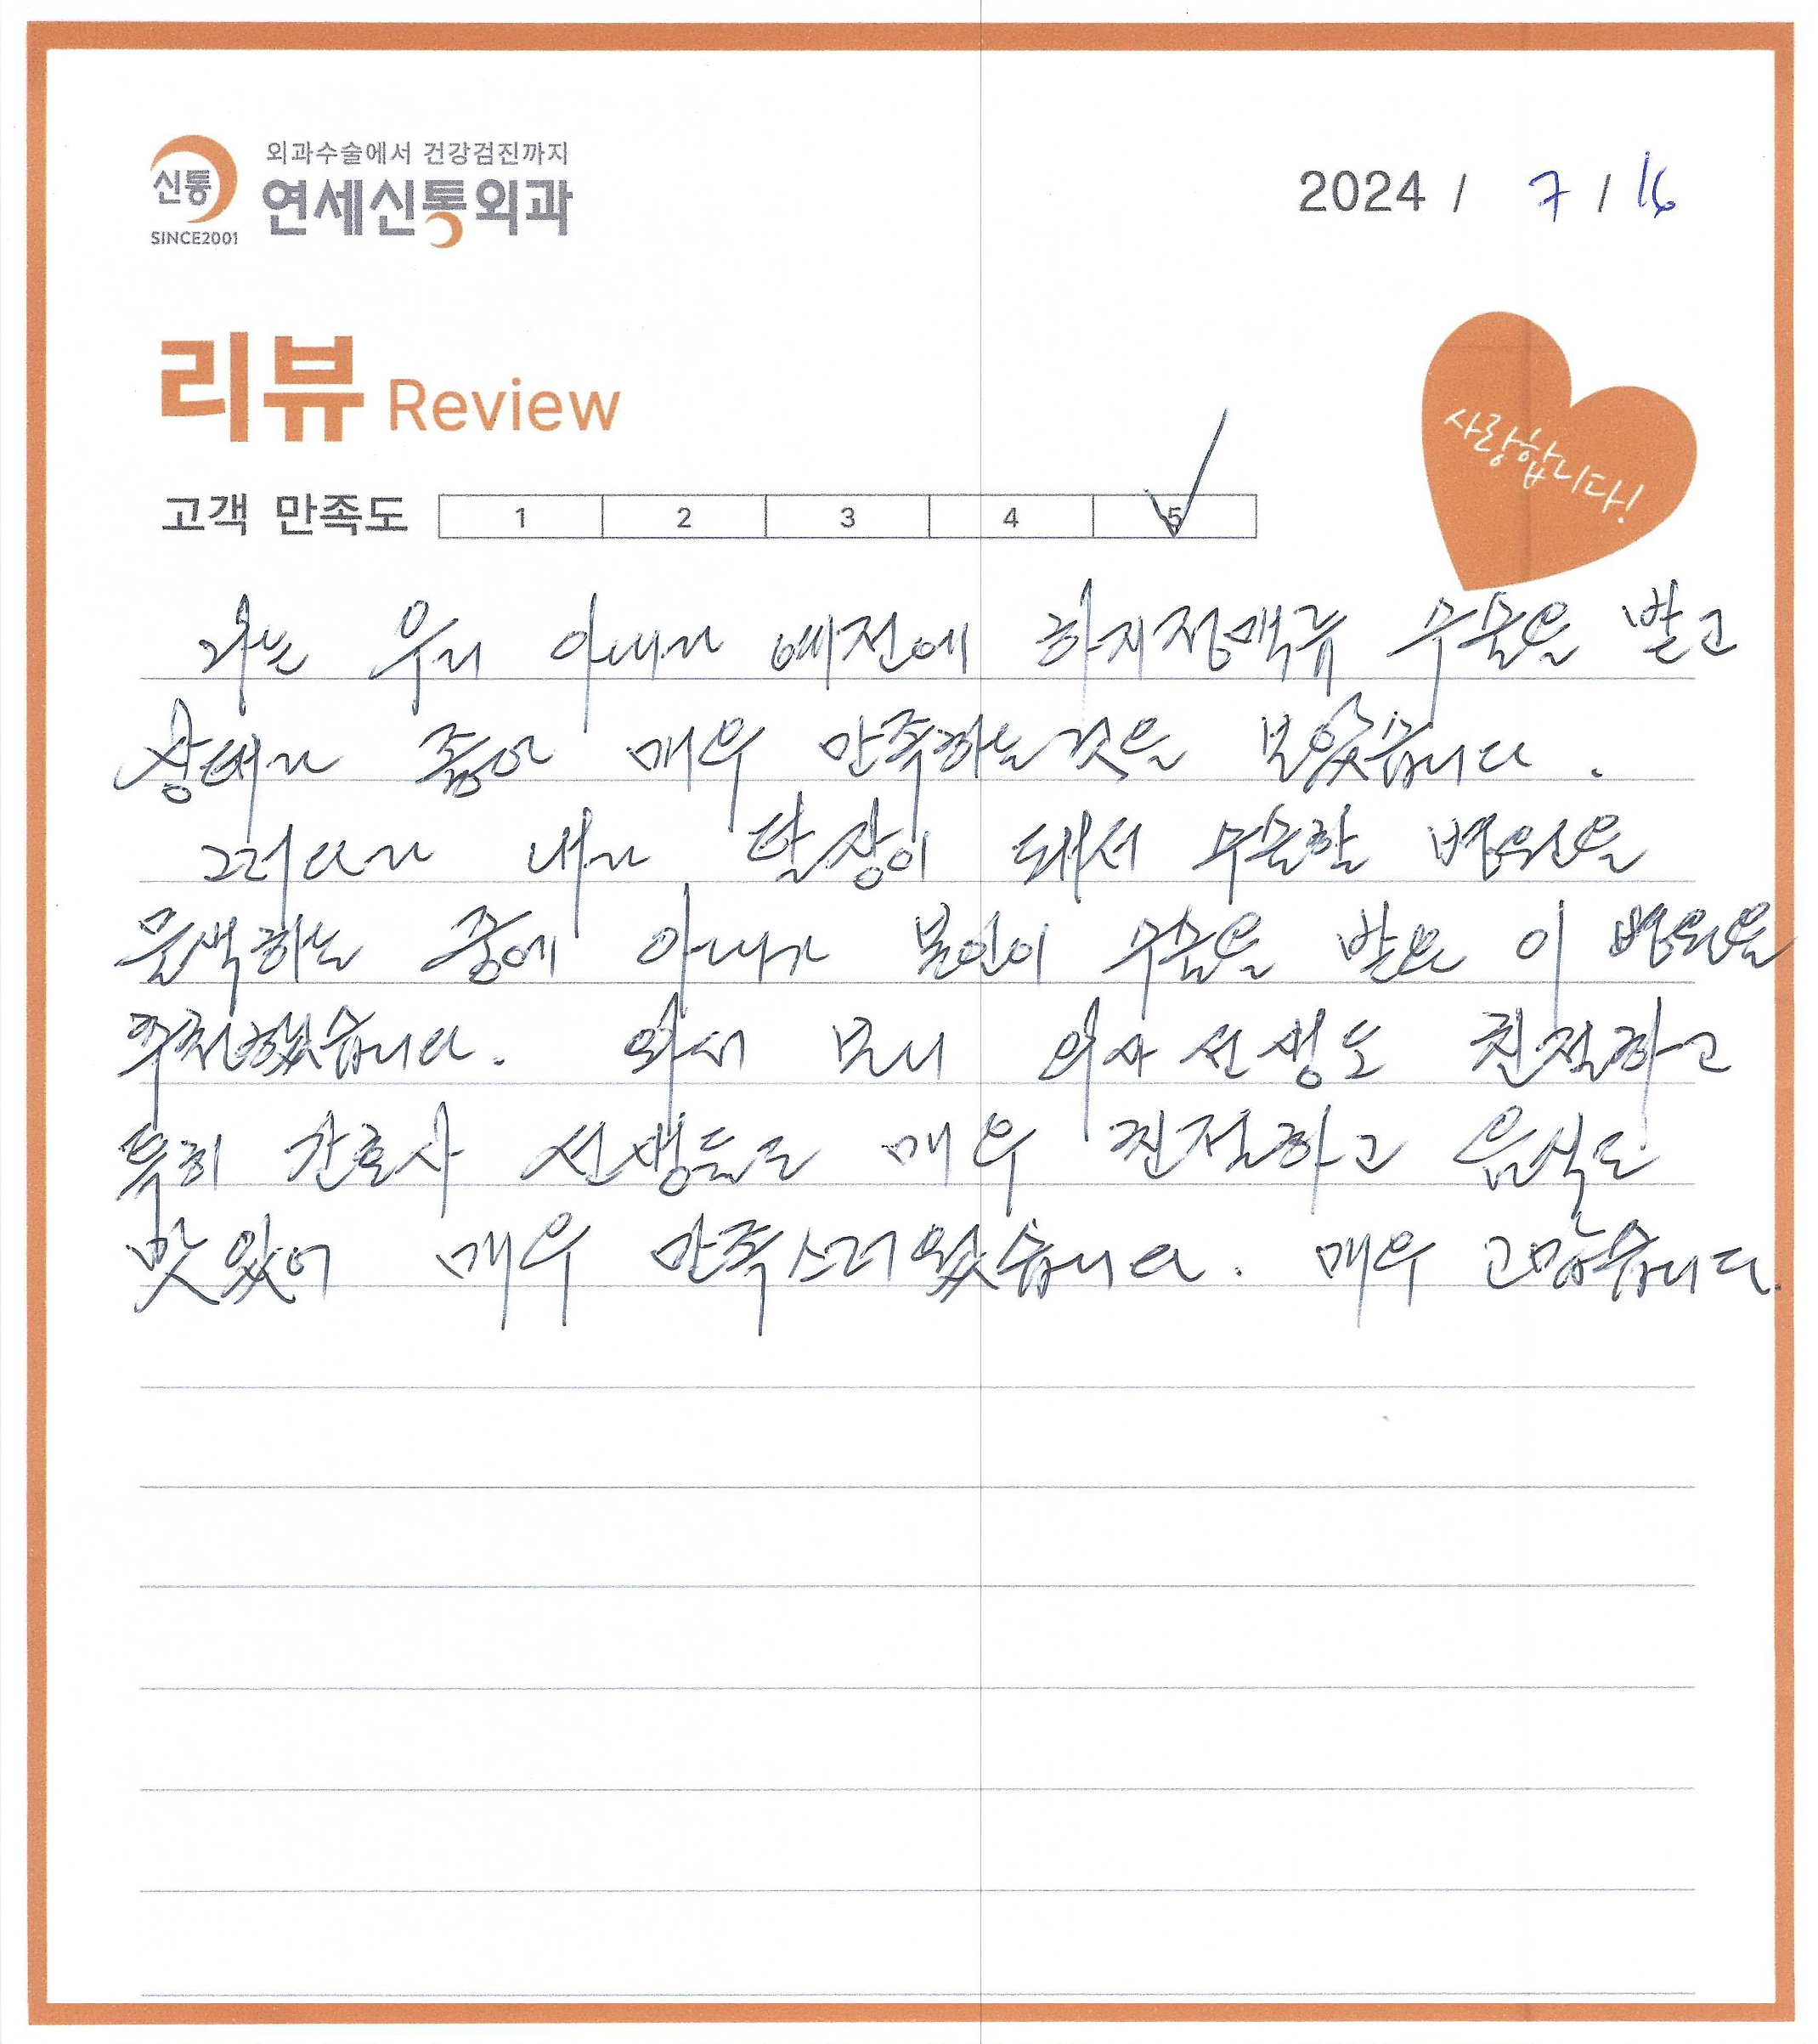 외과수술에서 건강검진까지
신통
연세신통외과
SINCE2001
2024 / 7 / 16
리뷰 Review
사랑합니다!
고객 만족도 1 2 3 4 5
나는 우리 아내가 예전에 하지정맥류 수술을 받고
상태가 좋아 매우 만족하는것을 보았습니다.
그러다가 내가 탈장이 돼서 수술할 병원을
물색하는 중에 아내가 본인이 수술을 받은 이 병원을
추천했습니다. 와서 보니 의사 선생도 친절하고
특히 간호사 선생들도 매우 친절하고 음식도
맛있어 매우 만족스러웠습니다. 매우 고맙습니다.